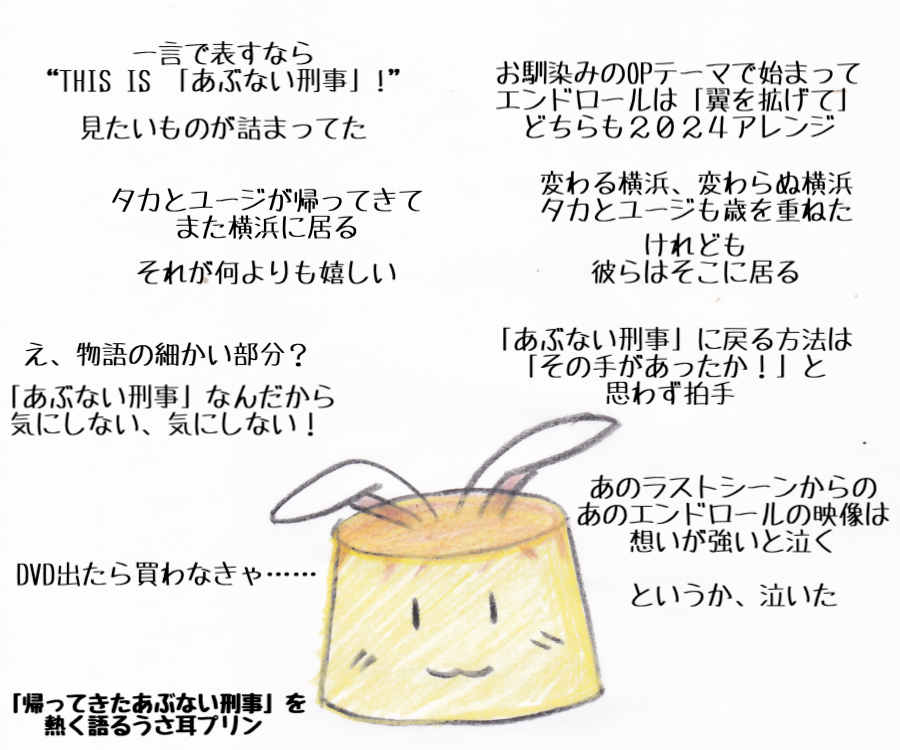 一言で表すなら
“THIS IS 「あぶない刑事」！”
見たいものが詰まってた
お馴染みのOPテーマで始まって
エンドロールは「翼を拡げて」
どちらも２０２４アレンジ
タカとユージが帰ってきて
また横浜に居る
それが何よりも嬉しい
変わる横浜、変わらぬ横浜
タカとユージも歳を重ねた
けれども
彼らはそこに居る
え、物語の細かい部分？
「あぶない刑事」なんだから
気にしない、気にしない！
「あぶない刑事」に戻る方法は
「その手があったか！」と
思わず拍手
あのラストシーンからの
あのエンドロールの映像は
想いが強いと泣く
というか、泣いた
DVD出たら買わなきゃ……
「帰ってきたあぶない刑事」を
熱く語るうさ耳プリン